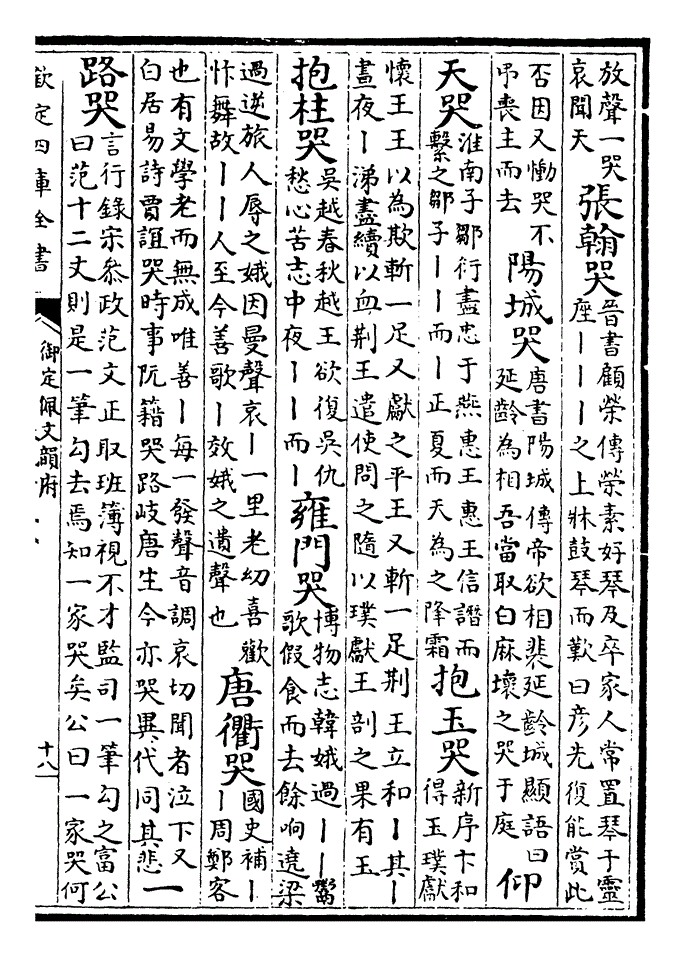 放聲一哭哀聞天 張翰哭 晉書顧榮傳榮素好琴及卒家人常置琴于靈座丨丨丨之上牀鼓琴而歎曰彥先復能賞此
否因又慟哭不弔喪主而去 陽城哭 唐書陽城傳帝欲相裴延齡城顯語曰延齡為相吾當取白麻壞之哭于庭 仰
天哭 淮南子鄒衍盡忠于燕惠王惠王信譖而繫之鄒子丨丨而丨正夏而天為之降霜 抱玉哭 新序卞和得玉璞獻
懷王王以為欺斬一足又獻之平王又斬一足荆王立和丨其丨晝夜丨涕盡續以血荆王遣使問之隨以璞獻王剖之果有玉
抱柱哭 吳越春秋越王欲復吳仇愁心苦志中夜丨丨而丨 雍門哭 博物志韓娥過丨丨鬻歌假食而去餘响遶梁
過逆旅人辱之娥因曼聲哀丨一里老幼喜歡忭舞故丨丨人至今善歌丨效娥之遺聲也 唐衢哭 國史補丨丨周鄭客
也有文學老而無成唯善丨每一發聲音調哀切聞者泣下又白居易詩賈誼哭時事阮籍哭路岐唐生今亦哭異代同其悲 一
路哭 言行錄宋叅政范文正取班簿視不才監司一筆勾之富公曰范十二丈則是一筆勾去焉知一家哭矣公曰一家哭何
欽定四庫全書 御定佩文韻府 十八